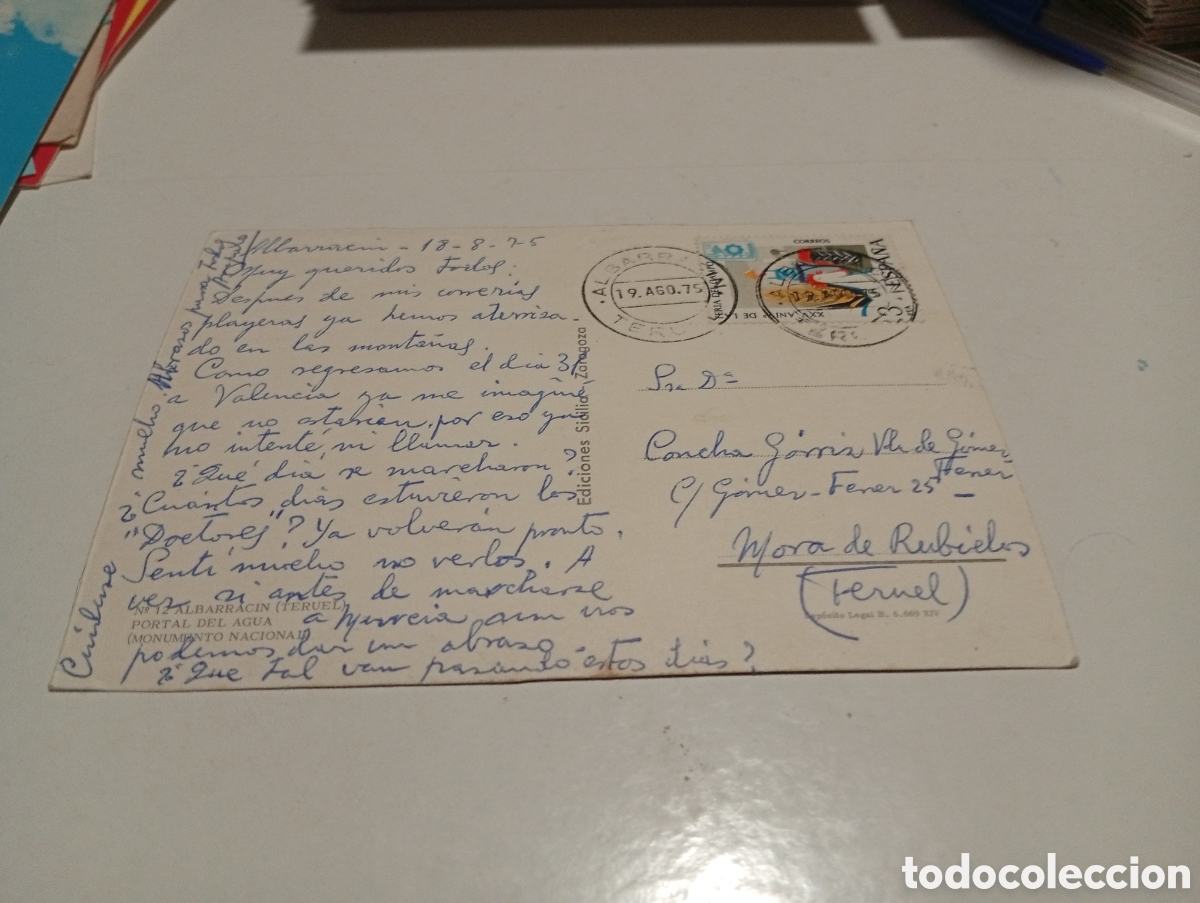 Albarracin - 18-8-75
Muy queridos todos:
Despues de mis correrias
playeras ya hemos aterriza-
do en las montañas.
Como regresamos el dia 31
a Valencia ya me imagine,
que no estarian, por eso ya
no intenté, ni llamar.
¿Qué dia se marcharon?
¿Cuántos dias estuvieron los
"Doctores"? Ya volverán pronto.
Sentí mucho no verlos. A
ver si antes de marcharse
a Murcia aun nos
podemos dar un abrazo.
¿Que tal van pasando estos dias?
Cuidense
mucho. Abrazos para todos
Nº 12 ALBARRACIN (TERUEL)
PORTAL DEL AGUA
(MONUMENTO NACIONAL)
Ediciones Sicilia, Zaragoza
ALBARRACIN
19.AGO.75
TERUEL
ESPAÑA
CORREOS
Sra Dª
Concha Górriz Vda de Gómez
Ferrer
C/ Gómez-Ferrer 25
Mora de Rubielos
(Teruel)
Depósito Legal B. 6.669 XIV
todocoleccion